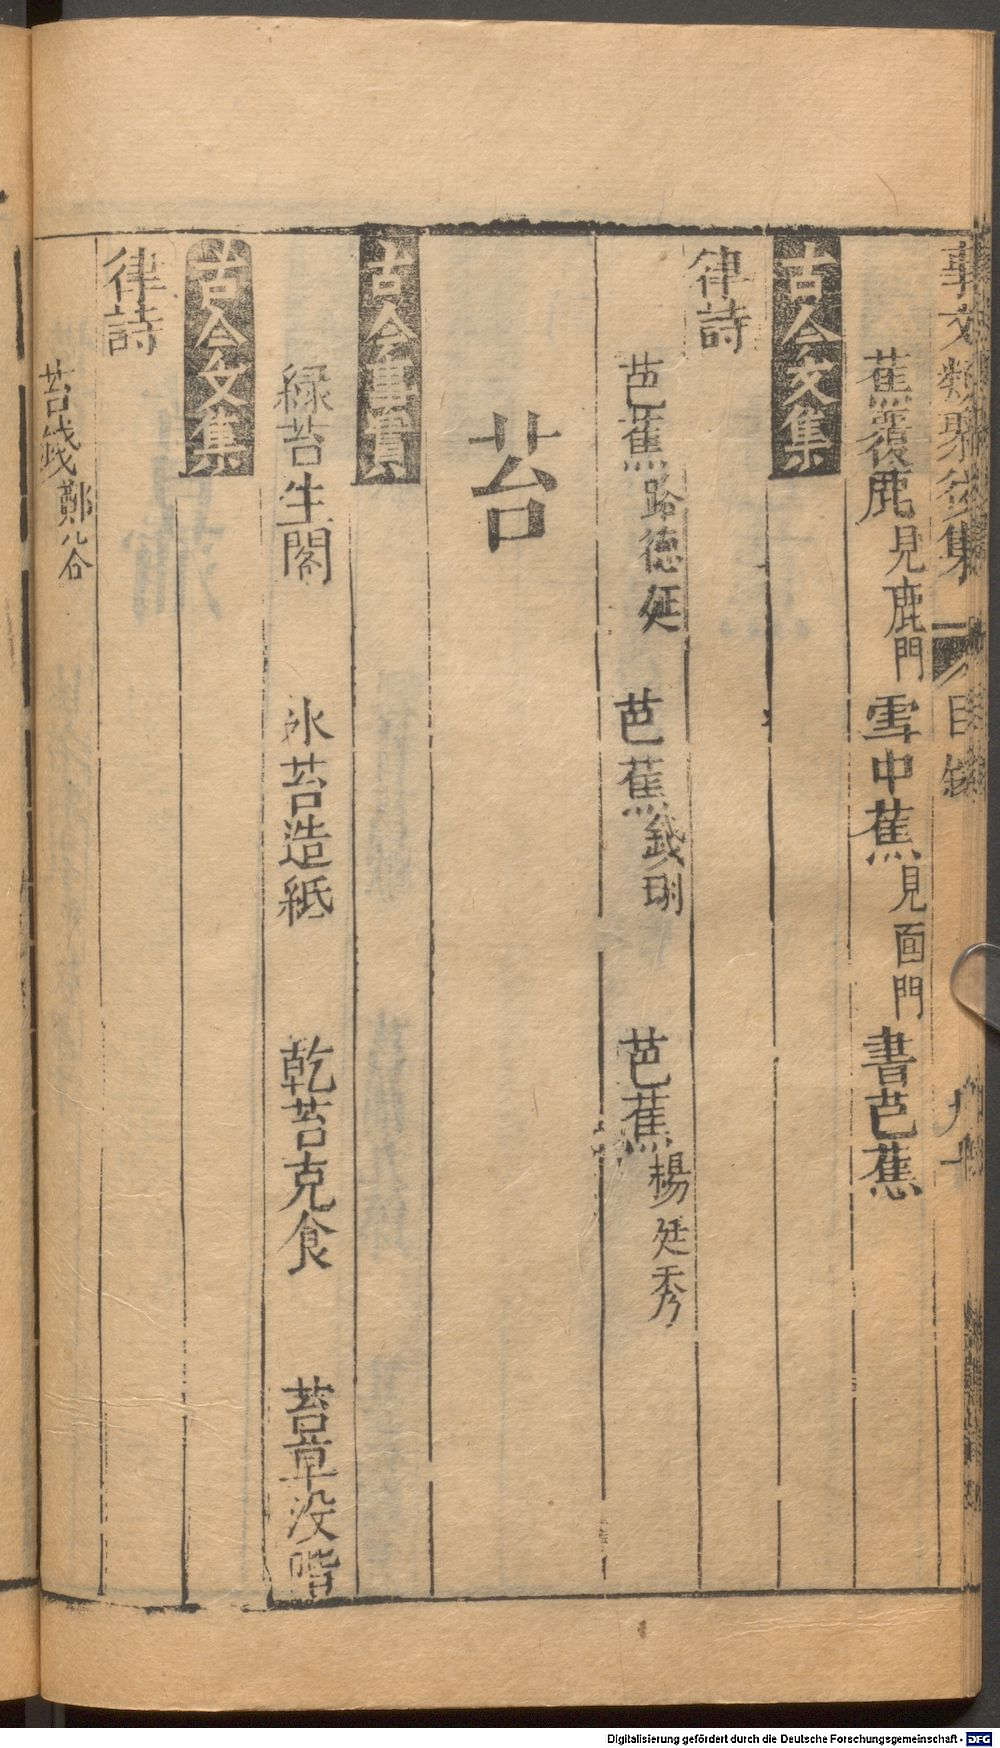 事文類聚後集 目錄 九十
蕉覆鹿見鹿門 雪中蕉見画門 書芭蕉
古今文集
律詩
芭蕉路德延 芭蕉錢珝 芭蕉楊廷秀
苔
古今事實
緑苔生閣 水苔造紙 乾苔克食 苔草没階
古今文集
律詩
苔錢鄭谷
Digitalisierung gefördert durch die Deutsche Forschungsgemeinschaft - DFG